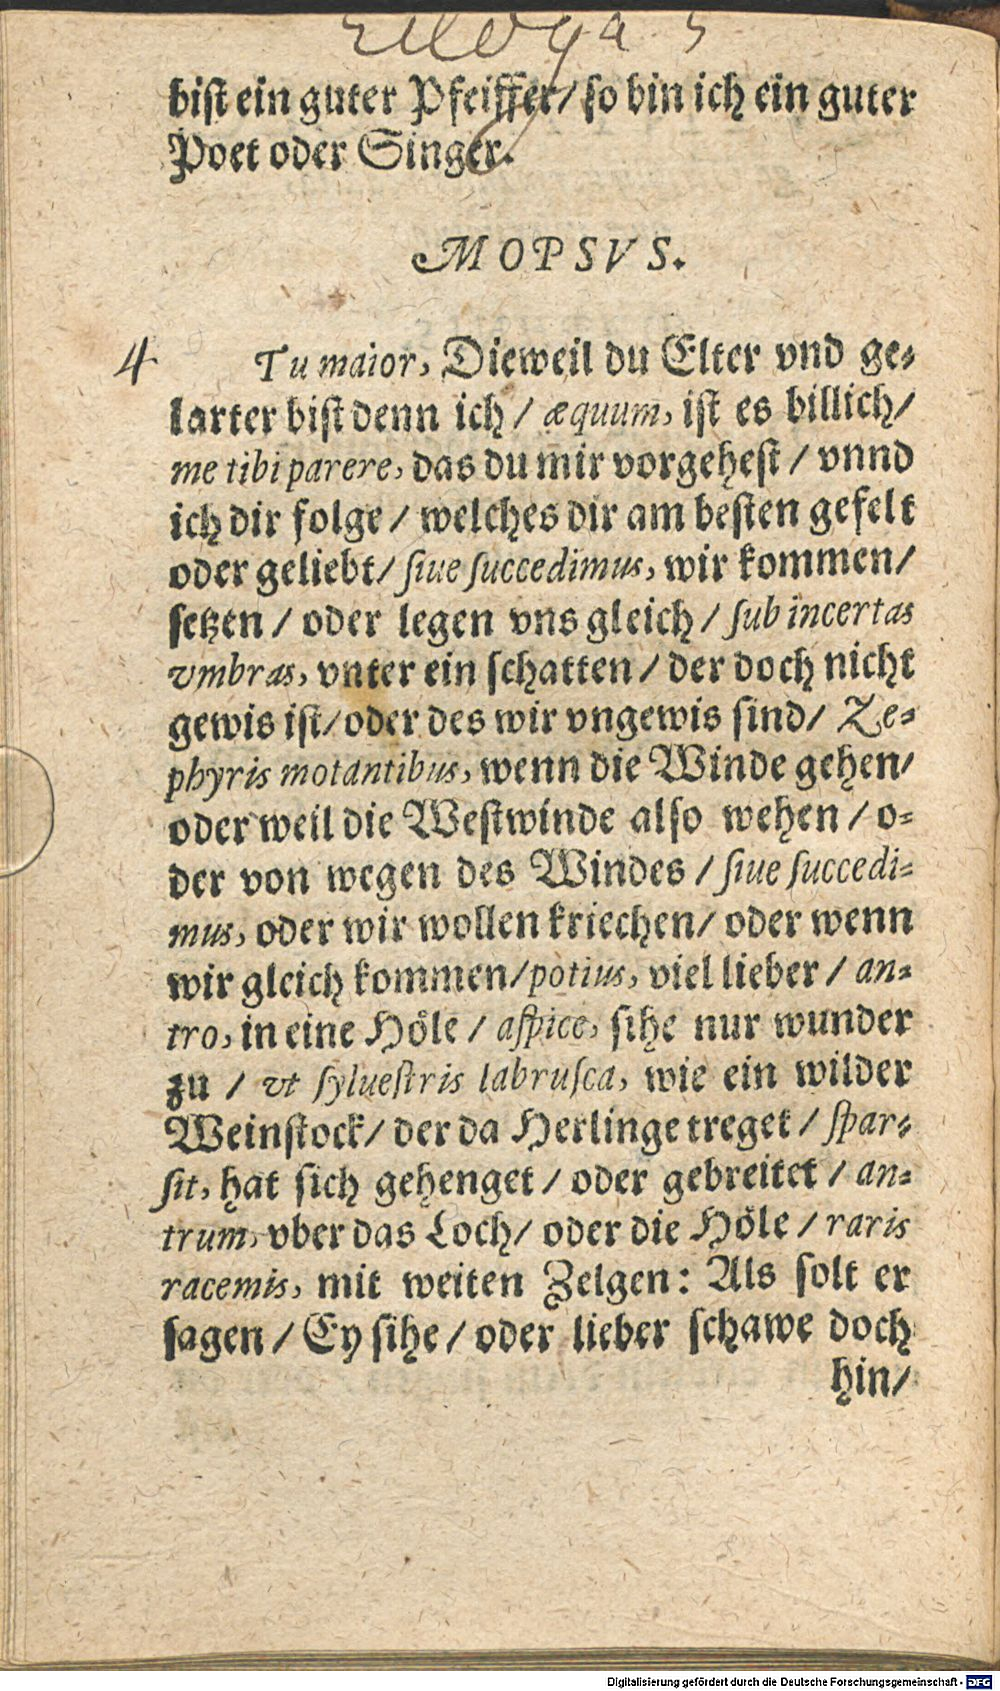 Ecloga 5
bist ein guter Pfeiffer/ so bin ich ein guter
Poet oder Singer.
MOPSVS.
4 Tu maior, Dieweil du Elter vnd ge-
larter bist denn ich / æquum, ist es billich/
me tibi parere, das du mir vorgehest / vnnd
ich dir folge / welches dir am besten gefelt
oder geliebt/ ſiue ſuccedimus, wir kommen/
setzen / oder legen vns gleich / ſub incertas
vmbras, vnter ein schatten / der doch nicht
gewis ist/ oder des wir vngewis sind/ Ze-
phyris motantibus, wenn die Winde gehen/
oder weil die Westwinde also wehen / o-
der von wegen des Windes / ſiue ſuccedi-
mus, oder wir wollen kriechen/ oder wenn
wir gleich kommen/ potius, viel lieber / an-
tro, in eine Höle / aſpice, sihe nur wunder
zu / vt ſylueſtris labruſca, wie ein wilder
Weinstock/ der da Herlinge treget / ſpar-
ſit, hat sich gehenget / oder gebreitet / an-
trum, vber das Loch/ oder die Höle / raris
racemis, mit weiten Zelgen: Als solt er
sagen / Ey sihe / oder lieber schawe doch
hin/
Digitalisierung gefördert durch die Deutsche Forschungsgemeinschaft - DFG